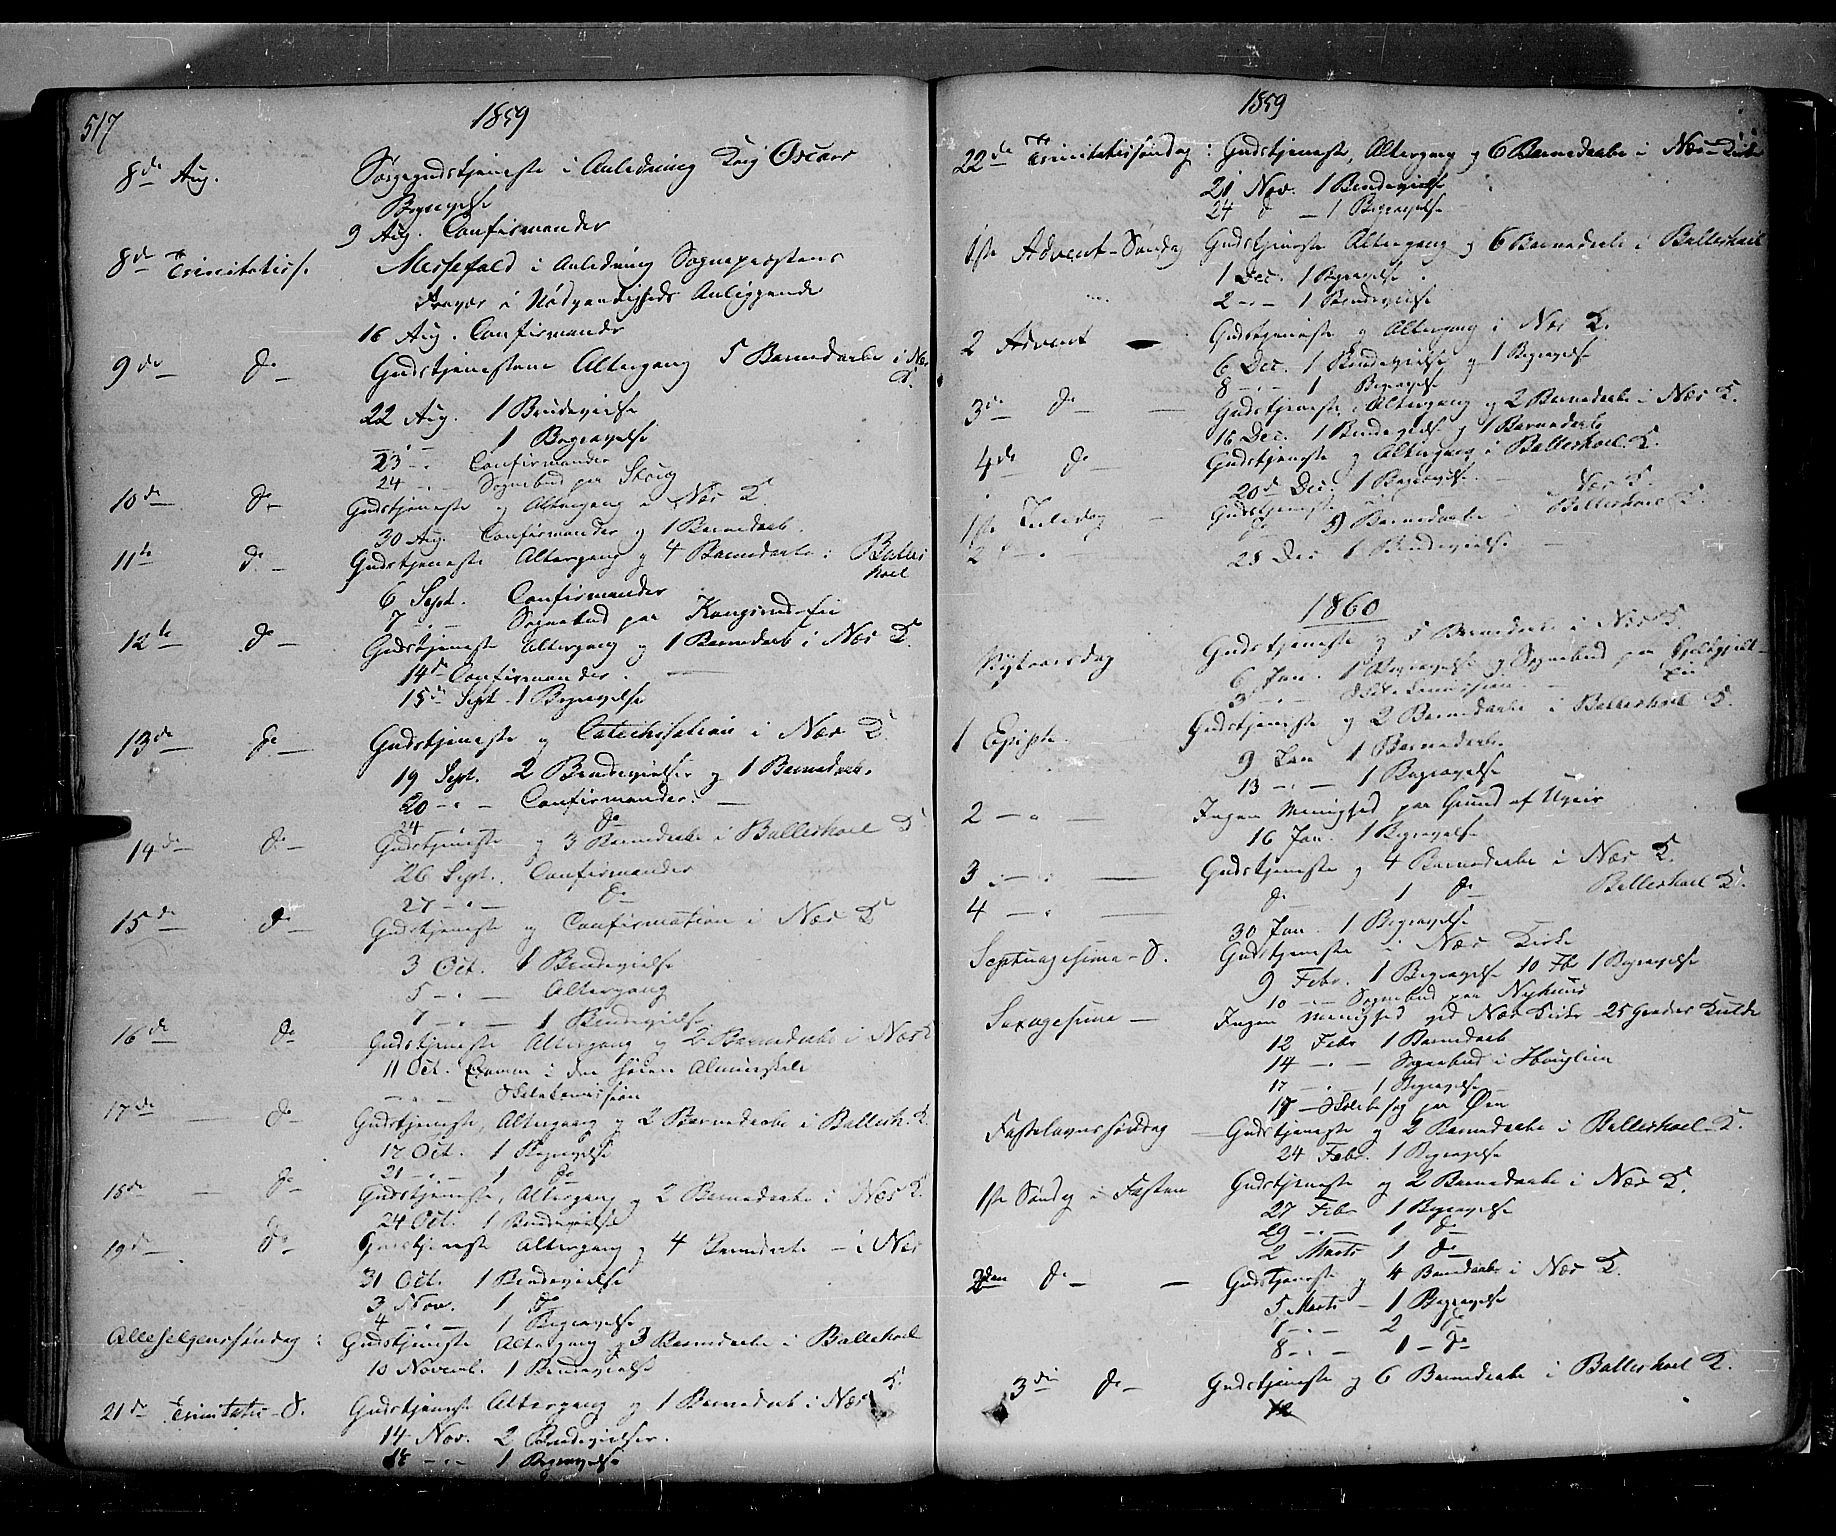 517
1859
8de Aug. Sørgegudstjeneste i Anledning Kong Oscars
Begravelse
9 Aug. Confirmander
8de Trinitatiss. Messefald i Anledning Sognepræstens
Fravær i Nødvendigheds Anliggende
16 Aug. Confirmander
9de do Gudstjenesten Altergang 5 Barnedaabe i Næs
K.
22 Aug. 1 Brudevielse
1 Begravelse
23 - Confirmander
24 - Sognebud paa
10de do Gudstjeneste og Altergang i Næs K.
30 Aug. Confirmander og 1 Barnedaab.
11te do Gudstjeneste Altergang og 4 Barnedaabe i Balles
hoel
6 Sept. Confirmander
7 - Sognebud paa
12te do Gudstjeneste Altergang og 1 Barnedaab i Næs K.
14de Confirmander.
15de Sept. 1 Begravelse
13de do Gudstjeneste og Catechisation i Næs K.
19 Sept. 2 Brudevielser og 1 Barnedaab.
20 - Confirmander.
24 do
14de do Gudstjeneste og 3 Barnedaabe i Balleshoel K
26 Sept. Confirmander
27 - do
15de do Gudstjeneste og Confirmation i Næs K
3 Oct. 1 Brudevielse
5 - Altergang
7 - 1 Brudevielse
16de do Gudstjeneste Altergang og 2 Barnedaabe i Næs K
11 Oct. Examen i den høiere Almueskole
Skolekommission
17de do Gudstjeneste, Altergang og 2 Barnedaabe i Ballesh. K.
17 Oct. 1 Begravelse
21 - 1 do
18de do Gudstjeneste, Altergang og 2 Barnedaabe i Næs K.
24 Oct. 1 Brudevielse
19de do Gudstjeneste Altergang og 4 Barnedaabe - i Næs
31 Oct. 1 Brudevielse
3 Nov. 1 do
4 - 1 Begravelse
Allehelgenssøndag: Gudstjeneste Altergang og 3 Barnedaabe i Balleshoel
10 Novemb. 1 Brudevielse
21de Trinitatis-S. Gudstjeneste Altergang og 1 Barnedaab i Næs K.
14 Nov. 2 Brudevielser.
18 - 1 Begravelse
1859
22de Trinitatissøndag: Gudstjeneste, Altergang og 6 Barnedaabe i Næs Kirke
21 Nov. 1 Brudevielse
24 do - 1 Begravelse
1ste Advent-Søndag Gudstjeneste Altergang og 6 Barnedaabe i Balleshoel
1 Dec. 1 Begravelse
2 - 1 Brudevielse
2 Advent - Gudstjeneste og Altergang i Næs K.
6 Dec. 1 Brudevielse og 1 Begravelse
8 - 1 Begravelse
3de do Gudstjeneste, Altergang og 2 Barnedaabe i Næs K.
16 Dec. 1 Brudevielse og 1 Barnedaab
4de do Gudstjeneste og Altergang i Balleshoel K.
20de Dec. 1 Begravelse.
1ste Juledag Gudstjeneste - Næs K.
2 - do 9 Barnedaabe - Balleshoel K.
28 Dec 1 Brudevielse
1860
Nytaarsdag Gudstjeneste og 5 Barnedaabe i Næs K.
6 Jan. 1 Begravelse og Sognebud paa
3 - Skolekommission.
1 Epiph. Gudstjeneste og 2 Barnedaabe i Balleshoel K.
9 Jan 1 Barnedaab.
13 - 1 Begravelse
2 - Ingen Menighed paa Grund af Uveir
16 Jan. 1 Begravelse
3 - Gudstjeneste og 4 Barnedaabe i Næs K.
4 - do 1 do Balleshoel K.
30 Jan. 1 Begravelse
Septuagesima-S. Gudstjeneste i Næs Kirke
9 Febr. 1 Begravelse 10 Fb 1 Begravelse
10 - Sognebud paa Nyhuus
Sexagesima - Ingen Menighed ved Næs Kirke - 25 Graders Kulde
12 Febr 1 Barnedaab
14 - Sognebud i
17 - 1 Begravelse
18 - Skolebesøg paa Øen
Fastelavnssøndag - Gudstjeneste og 2 Barnedaabe i Balleshoel K.
24 Febr. 1 Begravelse
1ste Søndag i Fasten Gudstjeneste og 2 Barnedaabe i Næs K.
27 Febr 1 Begravelse
29 - 1 do
2 Marts 1 do
2den do - Gudstjeneste og 4 Barnedaabe i Næs K.
5 Marts - 1 Begravelse
7 - 2 do
8 - 1 - do
3die do - Gudstjeneste og 6 Barnedaabe i Balleshoel K.
12